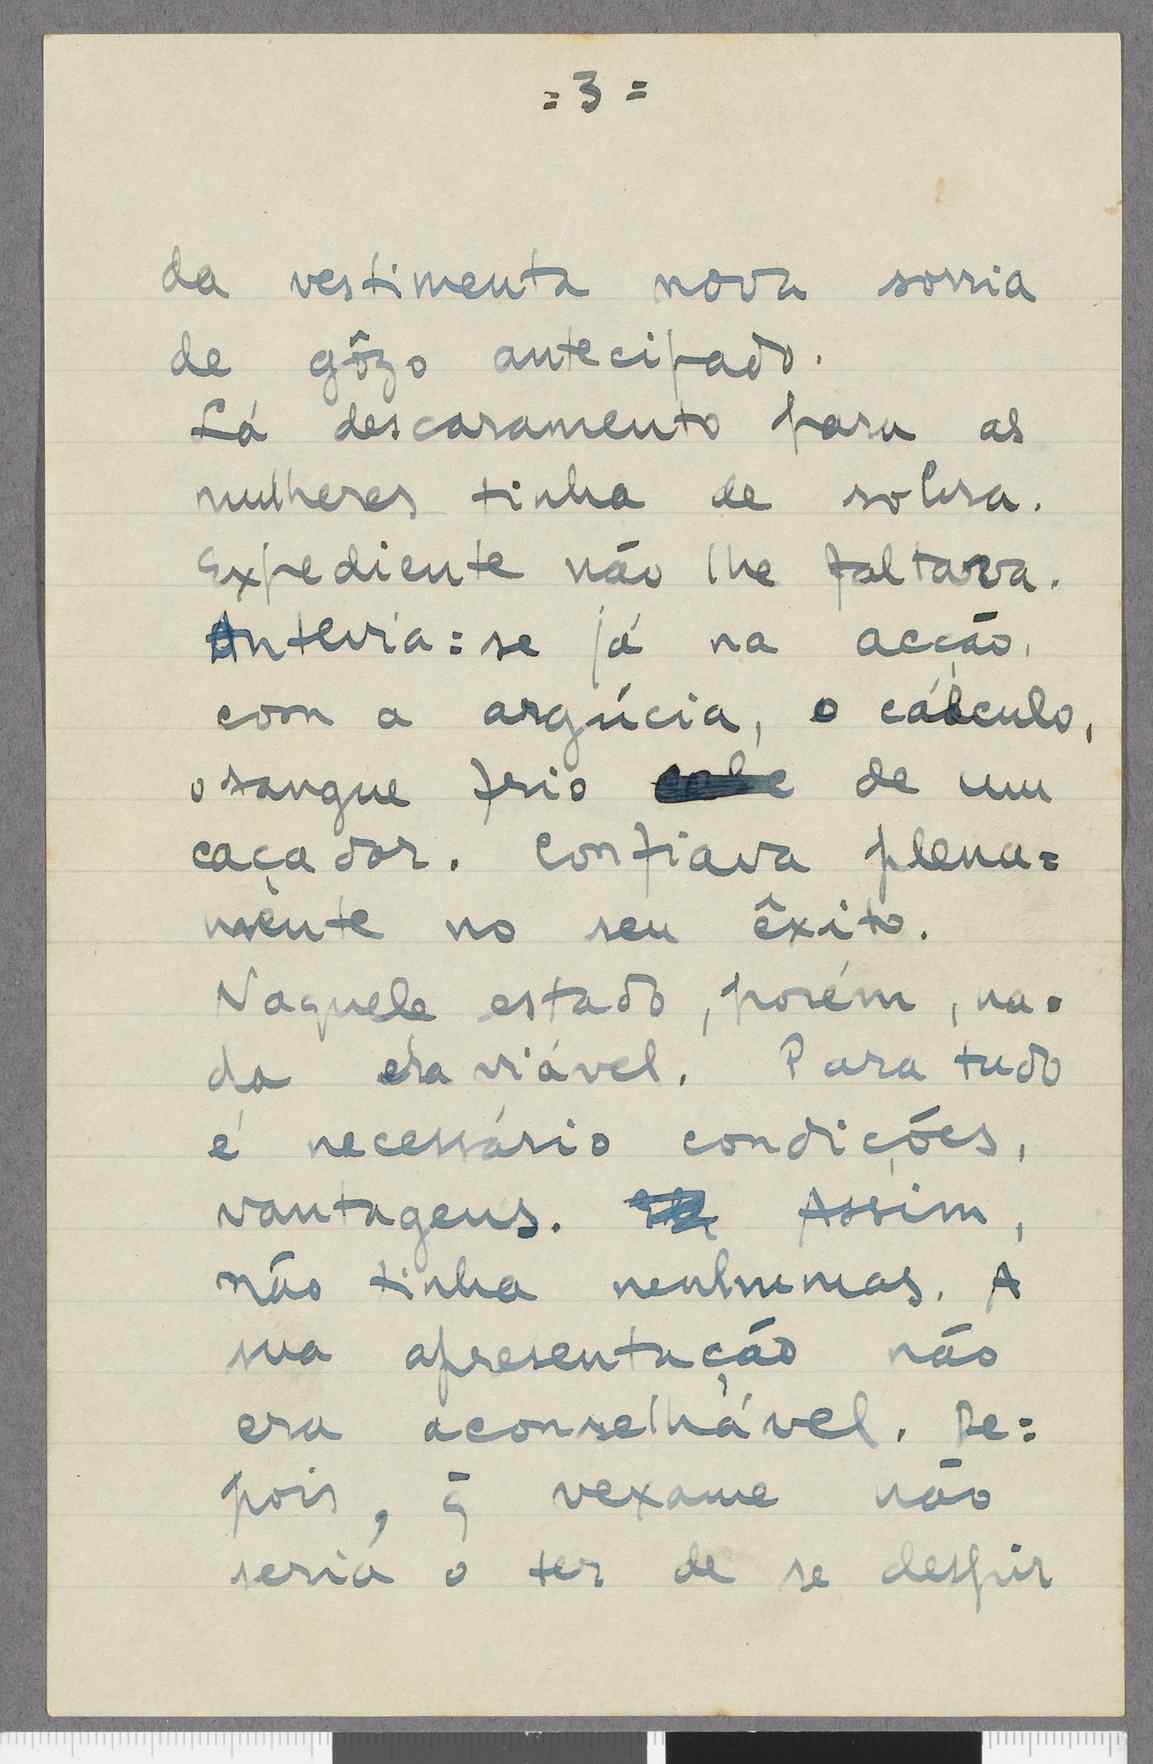 = 3 =
da vestimenta nova sorria
de gôzo antecipado.
Lá descaramento para as
mulheres tinha de sobra.
Expediente não lhe faltava.
Antevia=se já na acção,
com a argúcia, o cálculo,
o sangue frio de um
caçador. Confiava plena=
mente no seu êxito.
Naquele estado, porém, na=
da era viável. Para tudo
é necessário condições,
vantagens. Assim,
não tinha nenhumas. A
sua apresentação não
era aconselhável. De=
pois, q̃ vexame não
seria o ter de se despir